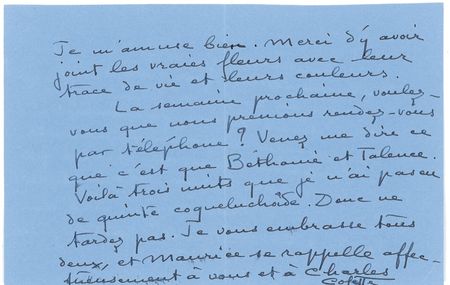 Je m'amuse bien. Merci d'y avoir
joint les vraies fleurs avec leur
trace de vie et leurs couleurs.
La semaine prochaine, voulez-
vous que nous prenions rendez-vous
par téléphone ? Venez me dire ce
que c'est que Béthanie et Talence.
Voilà trois nuits que je n'ai pas eu
de quinte coqueluchoïde. Donc ne
tardez pas. Je vous embrasse tous
deux, et Maurice se rappelle affec-
tueusement à vous et à Charles
Colette